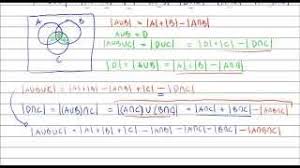 A B
C
|A∪B| = |A|+|B| - |A∩B|
A∪B = D
|A∪B∪C| = |D∪C| = |D|+|C| - |D∩C|
|D| = |A∪B| = |A|+|B| - |A∩B|
|A∪B∪C| = |A|+|B| - |A∩B| + |C| - |D∩C|
|D∩C| = |(A∪B)∩C| = |(A∩C)∪(B∩C)| = |A∩C| + |B∩C| - |A∩B∩C|
|A∪B∪C| = |A|+|B|+|C| - |A∩B| - |A∩C| - |B∩C| + |A∩B∩C|